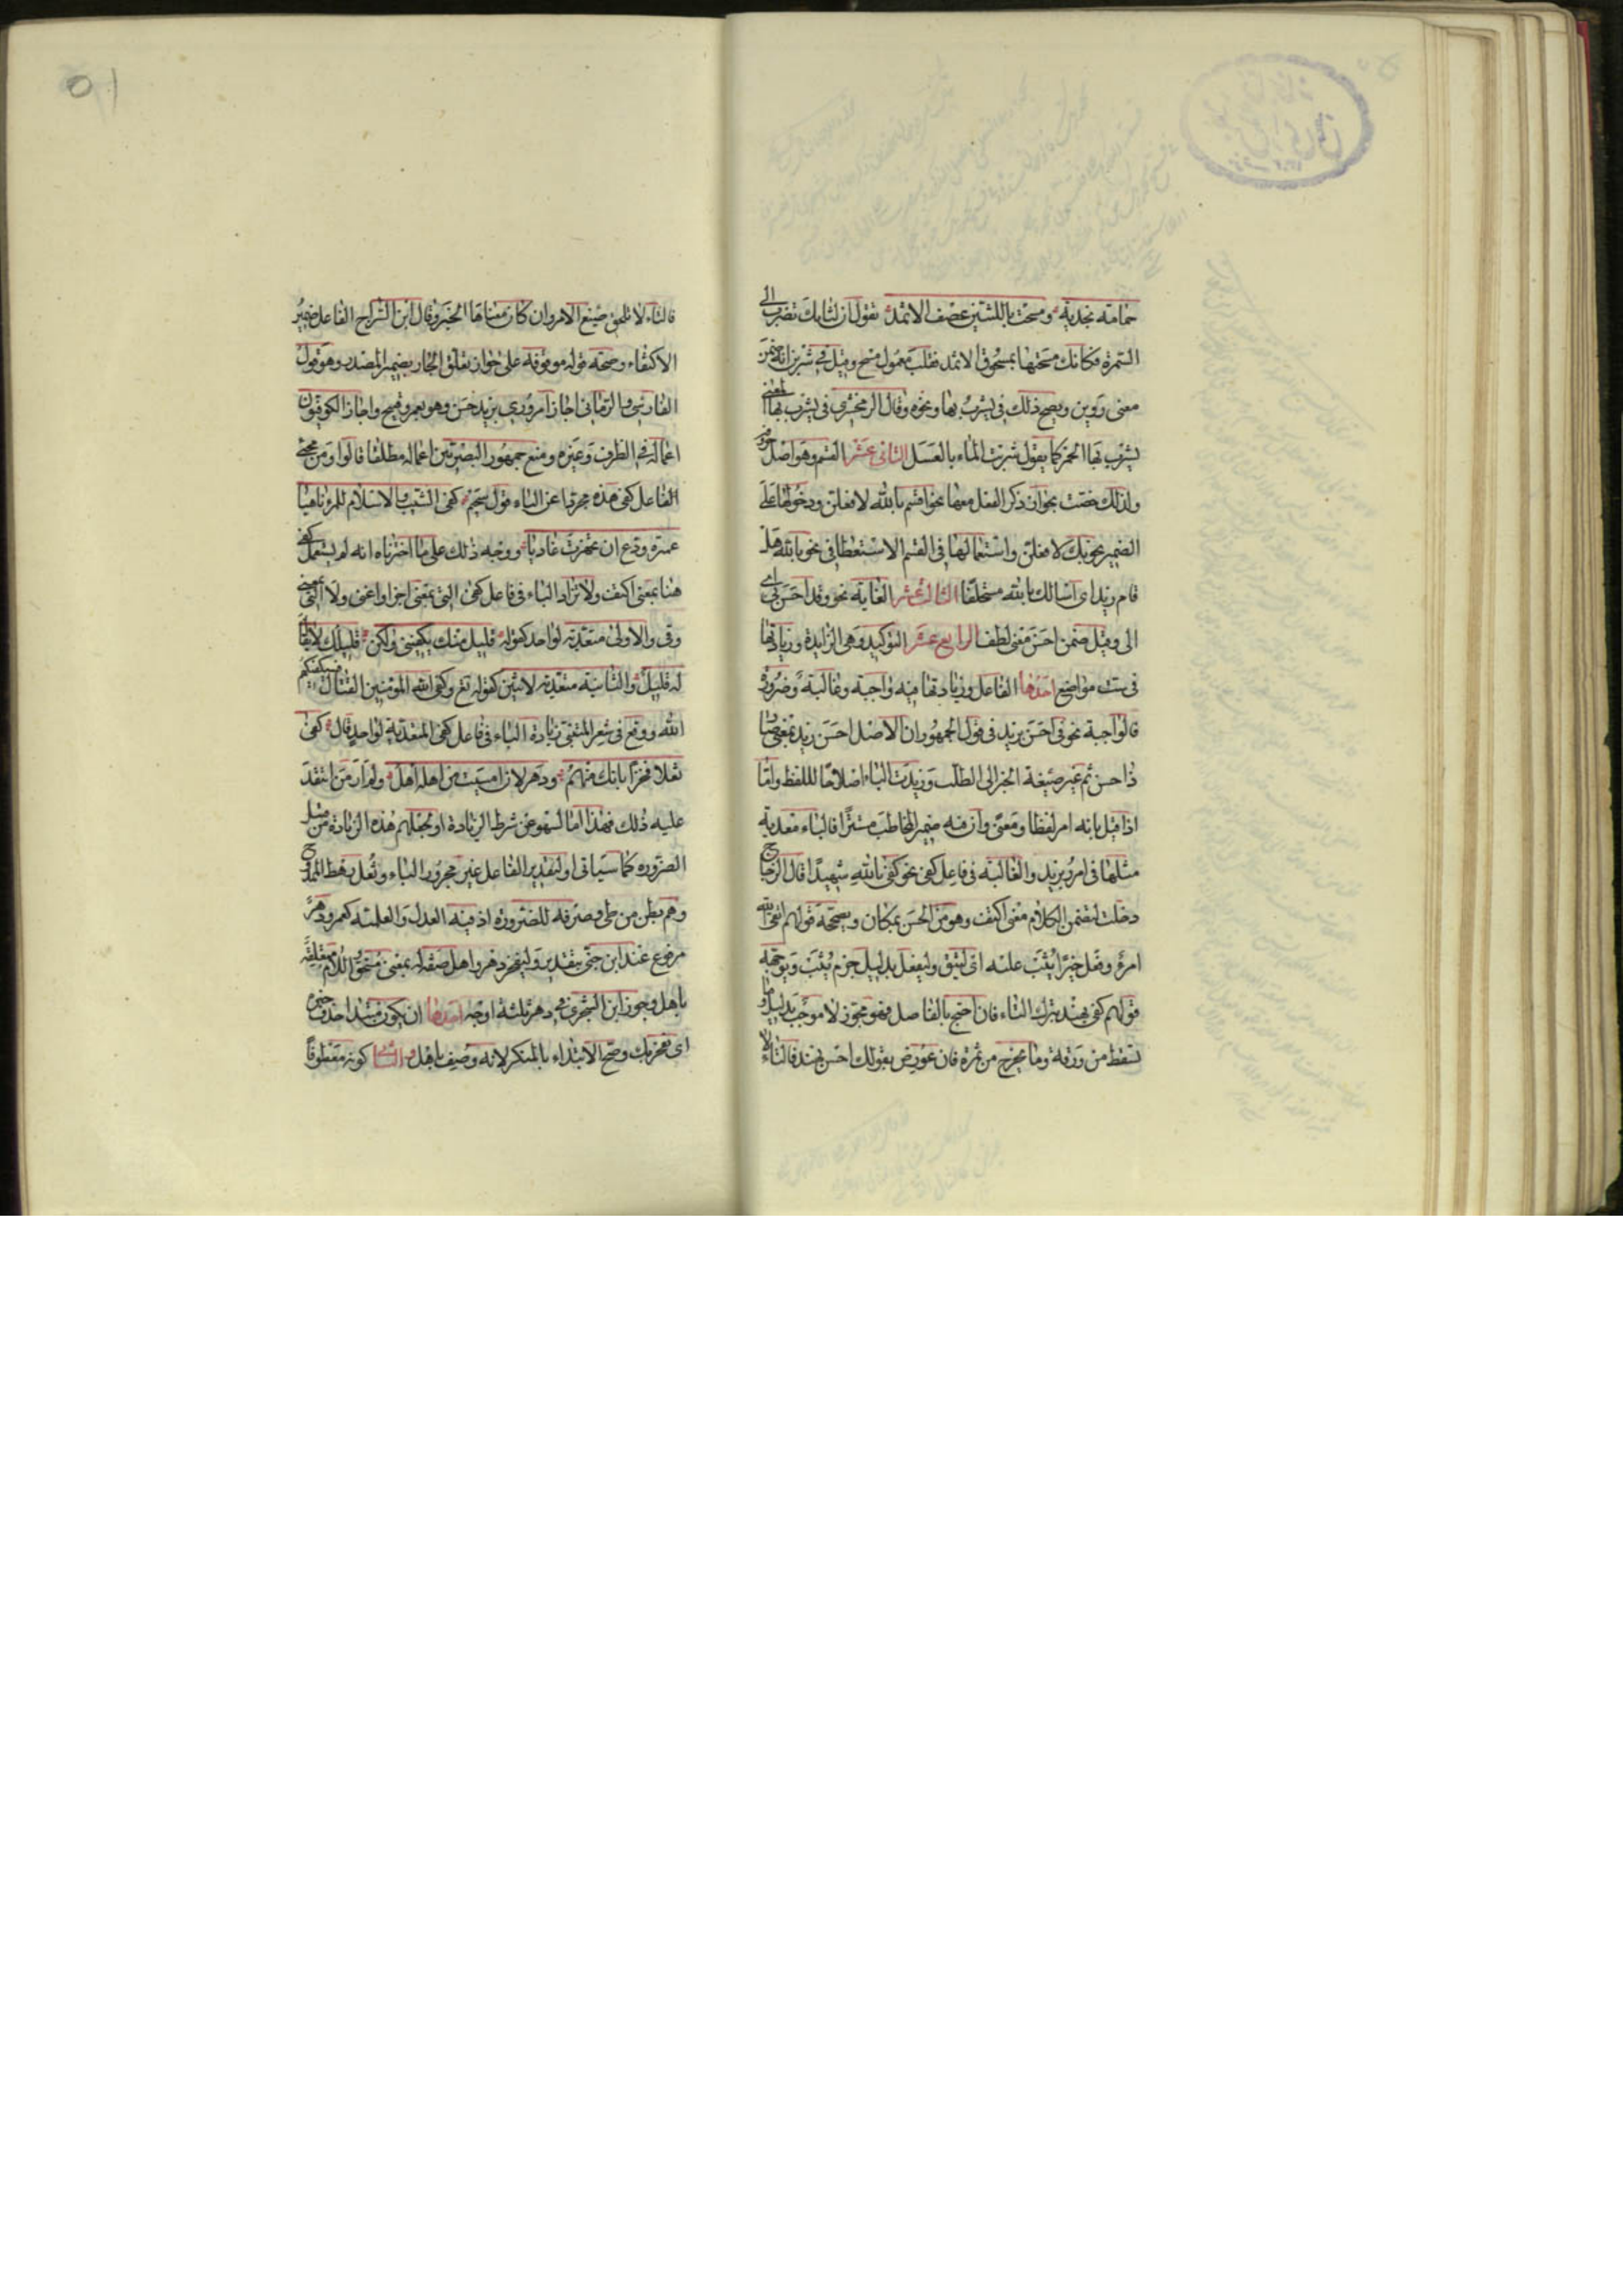 حمامة نجدية ومسحت باللثتين عصف الاثمد تقول ان لثاتك تضرب الى
السمرة فكانك مسحتها بمسحوق الاثمد فقلب معمول مسح وقيل في شربن انه ضمن
معنى روين ويصح ذلك في يشرب بها ونحوه وقال الزمخشرى في يشرب بها المعنى
يشرب بها الخمر كما يقول شربت الماء بالعسل الثانى عشر القسم وهو اصل حروفه
ولذلك خصت بجواز ذكر الفعل معها نحو اقسم بالله لافعلن ودخولها على
الضمير نحو بك لافعلن واستعمالها في القسم الاستعطافى نحو بالله هل
قام زيد اى اسالك بالله مستحلفا الثالث عشر الغاية نحو وقد احسن بى اى
الى وقيل ضمن احسن معنى لطف الرابع عشر التوكيد وهى الزايدة وزيادتها
في ست مواضع احدها الفاعل وزيادتها فيه واجبة وغالبة وضرورة
فالواجبة نحو في احسن بزيد في قول الجمهور ان الاصل احسن زيد بمعنى صار
ذا حسن ثم غير صيغة الخبر الى الطلب وزيدت الباء اصلاحا للفظ واما
اذا قيل بانه امر لفظا ومعنى وان فيه ضمير المخاطب مستترا فالباء معدية
مثلها في امرر بزيد والغالبة في فاعل كفى نحو كفى بالله شهيدا قال الزجاج
دخلت لتضمن الكلام معنى اكتف وهو من الحسن بمكان ويصححه قولهم اتقى الله
امرؤ وفعل خيرا يثب عليه اى ليتق وليفعل بدليل جزم يثب ويوجبه
قولهم كفى بهند بترك التاء فان احتج بالفاصل فهو مجوز لا موجب بدليل وما
تسقط من ورقة وما تخرج من ثمرة فان عورض بقولك احسن بهند فالتاء لا
فالتاء لا تلحق صيغ الامر وان كان معناها الخبر وقال ابن السراج الفاعل ضمير
الاكتفاء وصحة قوله موقوفة على جواز تعلق الجار بضمير المصدر وهو قول
الفارسى والرمانى اجازا مرورى بزيد حسن وهو بعمرو قبيح واجاز الكوفيون
اعماله في الظرف وغيره ومنع جمهور البصريين اعماله مطلقا قالوا ومن مجئ
الفاعل كفى هذه مجردا عن الباء قول سحيم كفى الشيب والاسلام للمرء ناهيا
عميرة ودع ان تجهزت غاديا ووجه ذلك على ما اخترناه انه لم يستعمل كفى
هنا بمعنى اكتف ولا تزاد الباء في فاعل كفى التى بمعنى اجزا واغنى ولا التى بمعنى
وقى والاولى متعدية لواحد كقوله قليل منك يكفينى ولكن قليلك لا يقال
له قليل والثانية متعدية لاثنين كقوله تع وكفى الله المؤمنين القتال فسيكفيكهم
الله ووقع في شعر المتنبى زيادة الباء في فاعل كفى المتعدية لواحد قال كفى
ثعلا فخرا بانك منهم ودهر لان امسيت من اهله اهل ولم ار من انتقد
عليه ذلك فهذا اما لسهو عن شرط الزيادة او لجعلهم هذه الزيادة من قبيل
الضرورة كما سياتى او لتقدير الفاعل غير مجرور الباء وثعل رهط الممدوح
وهم بطن من طى وصرفه للضرورة اذ فيه العدل والعلمية كعمر ودهر
مرفوع عند ابن جنى بتقدير وليفخر دهر واهل صفة له بمعنى مستحق واللام متعلقة
باهل وجوز ابن الشجرى في دهر ثلثة اوجه احدها ان يكون مبتدا حذف خبره
اى يفخر بك وصح الابتداء بالمنكر لانه وصف باهل والثانى كونه معطوفا